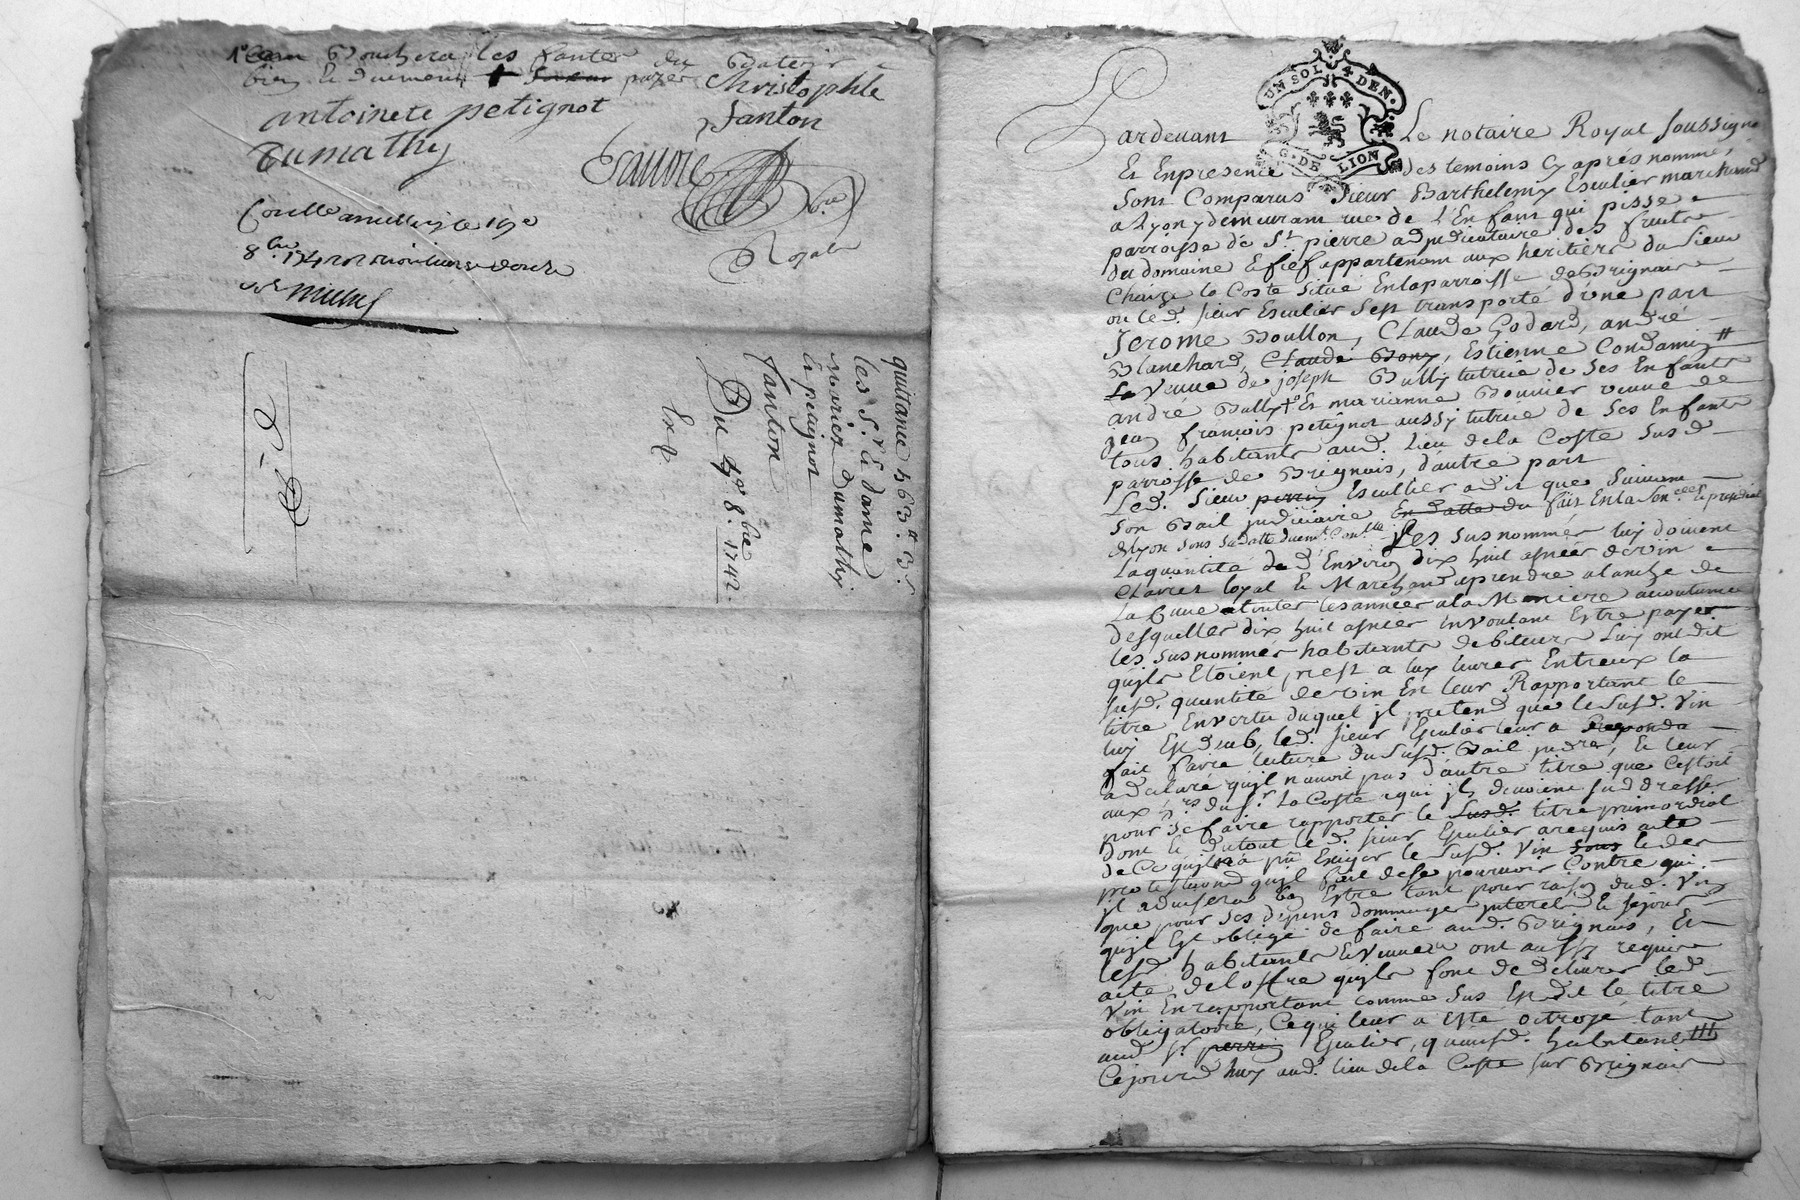 antoinete petignot
Christophle
fanton
Dumathy
Royal
8.bre 1742
quittance 563.tt 3.s
les S.r & dame
mariez Dumathy
& petignot
fanton
Du 19e 8.bre 1742
UN SOL 4 DEN.
G. DE LION
Pardevant Le notaire Royal soussigné
Et Enpresence des temoins Cy aprés nommé,
Sont Comparus Sieur Barthelemy Esculier marchand
a Lyon y demeurant rue de L'Enfant qui pisse
parroisse de St. pierre adjudicataire des fruits
du domaine & fief appartenant aux heritiers du Sieur
Chaize la Coste Situé Enlaparroisse de Brignais
ou led. sieur Esculier Sest transporté d'une part
Jerome Boullon, Claude Godard, andré
Blanchard, Claude Bony, Estienne Condamin
La Veuve de joseph Bally tutrice de Ses Enfants
andré Bally Et marianne Bounier veuve de
jean françois petignot aussy tutrice de Ses Enfants
tous habitants aud. Lieu dela Coste Susd.
parroisse de Brignais, d'autre part
Led. Sieur perrin Escullier a dit que Suivant
Son Bail judiciaire En datte du fait Enla Sen.cée & presidial
dLyon sous sa datte Les susnommés luy doivent
La quantité de d'Environ dix huit asnées de vin
Clairet loyal & Marchand aprendre alanche de
La Cuve a toutes les années ala Maniere accoutumé
desquelles dix huit asnées Envoulant Estre payer
les susnommés habitants debiteurs Luy ont dit
quils Etoient prest a luy livrer Entreux la
susd. quantité de vin En leur Rapportant le
titre Envertu duquel jl pretend que le susd. Vin
luy Est dub, led. sieur Esculier leur a Repondu
fait faire lecture du susd. Bail jud.re, Et leur
a declaré quil n'avoit pas d'autre titre que Cestoit
aux h.rs du S.r La Coste aqui jls devoient sadresser
pour Se faire rapporter le susd. titre primordial
Dont & dutout led. sieur Esculier arequis acte
de Ce quil na pû Exiger le susd. Vin sous les
protestations quil fait dese pourvoir Contre qui
jl advisera Bon Estre tant pour raison dud. Vin
que pour Ses depens dommages jnterets & sejour
quil Est obligé de faire aud. Brignais, Et
lesd. habitants & veuves ont aussy requis
acte de loffre quils font de delivrer led.
Vin Enrapportant comme Sus Est dit le titre
obligatoire, Ce qui leur a Esté octroyé tant
aud. S.r perrin Esculier, quausd. habitants
Cejourd'huy aud. lieu dela Coste sur Brignais